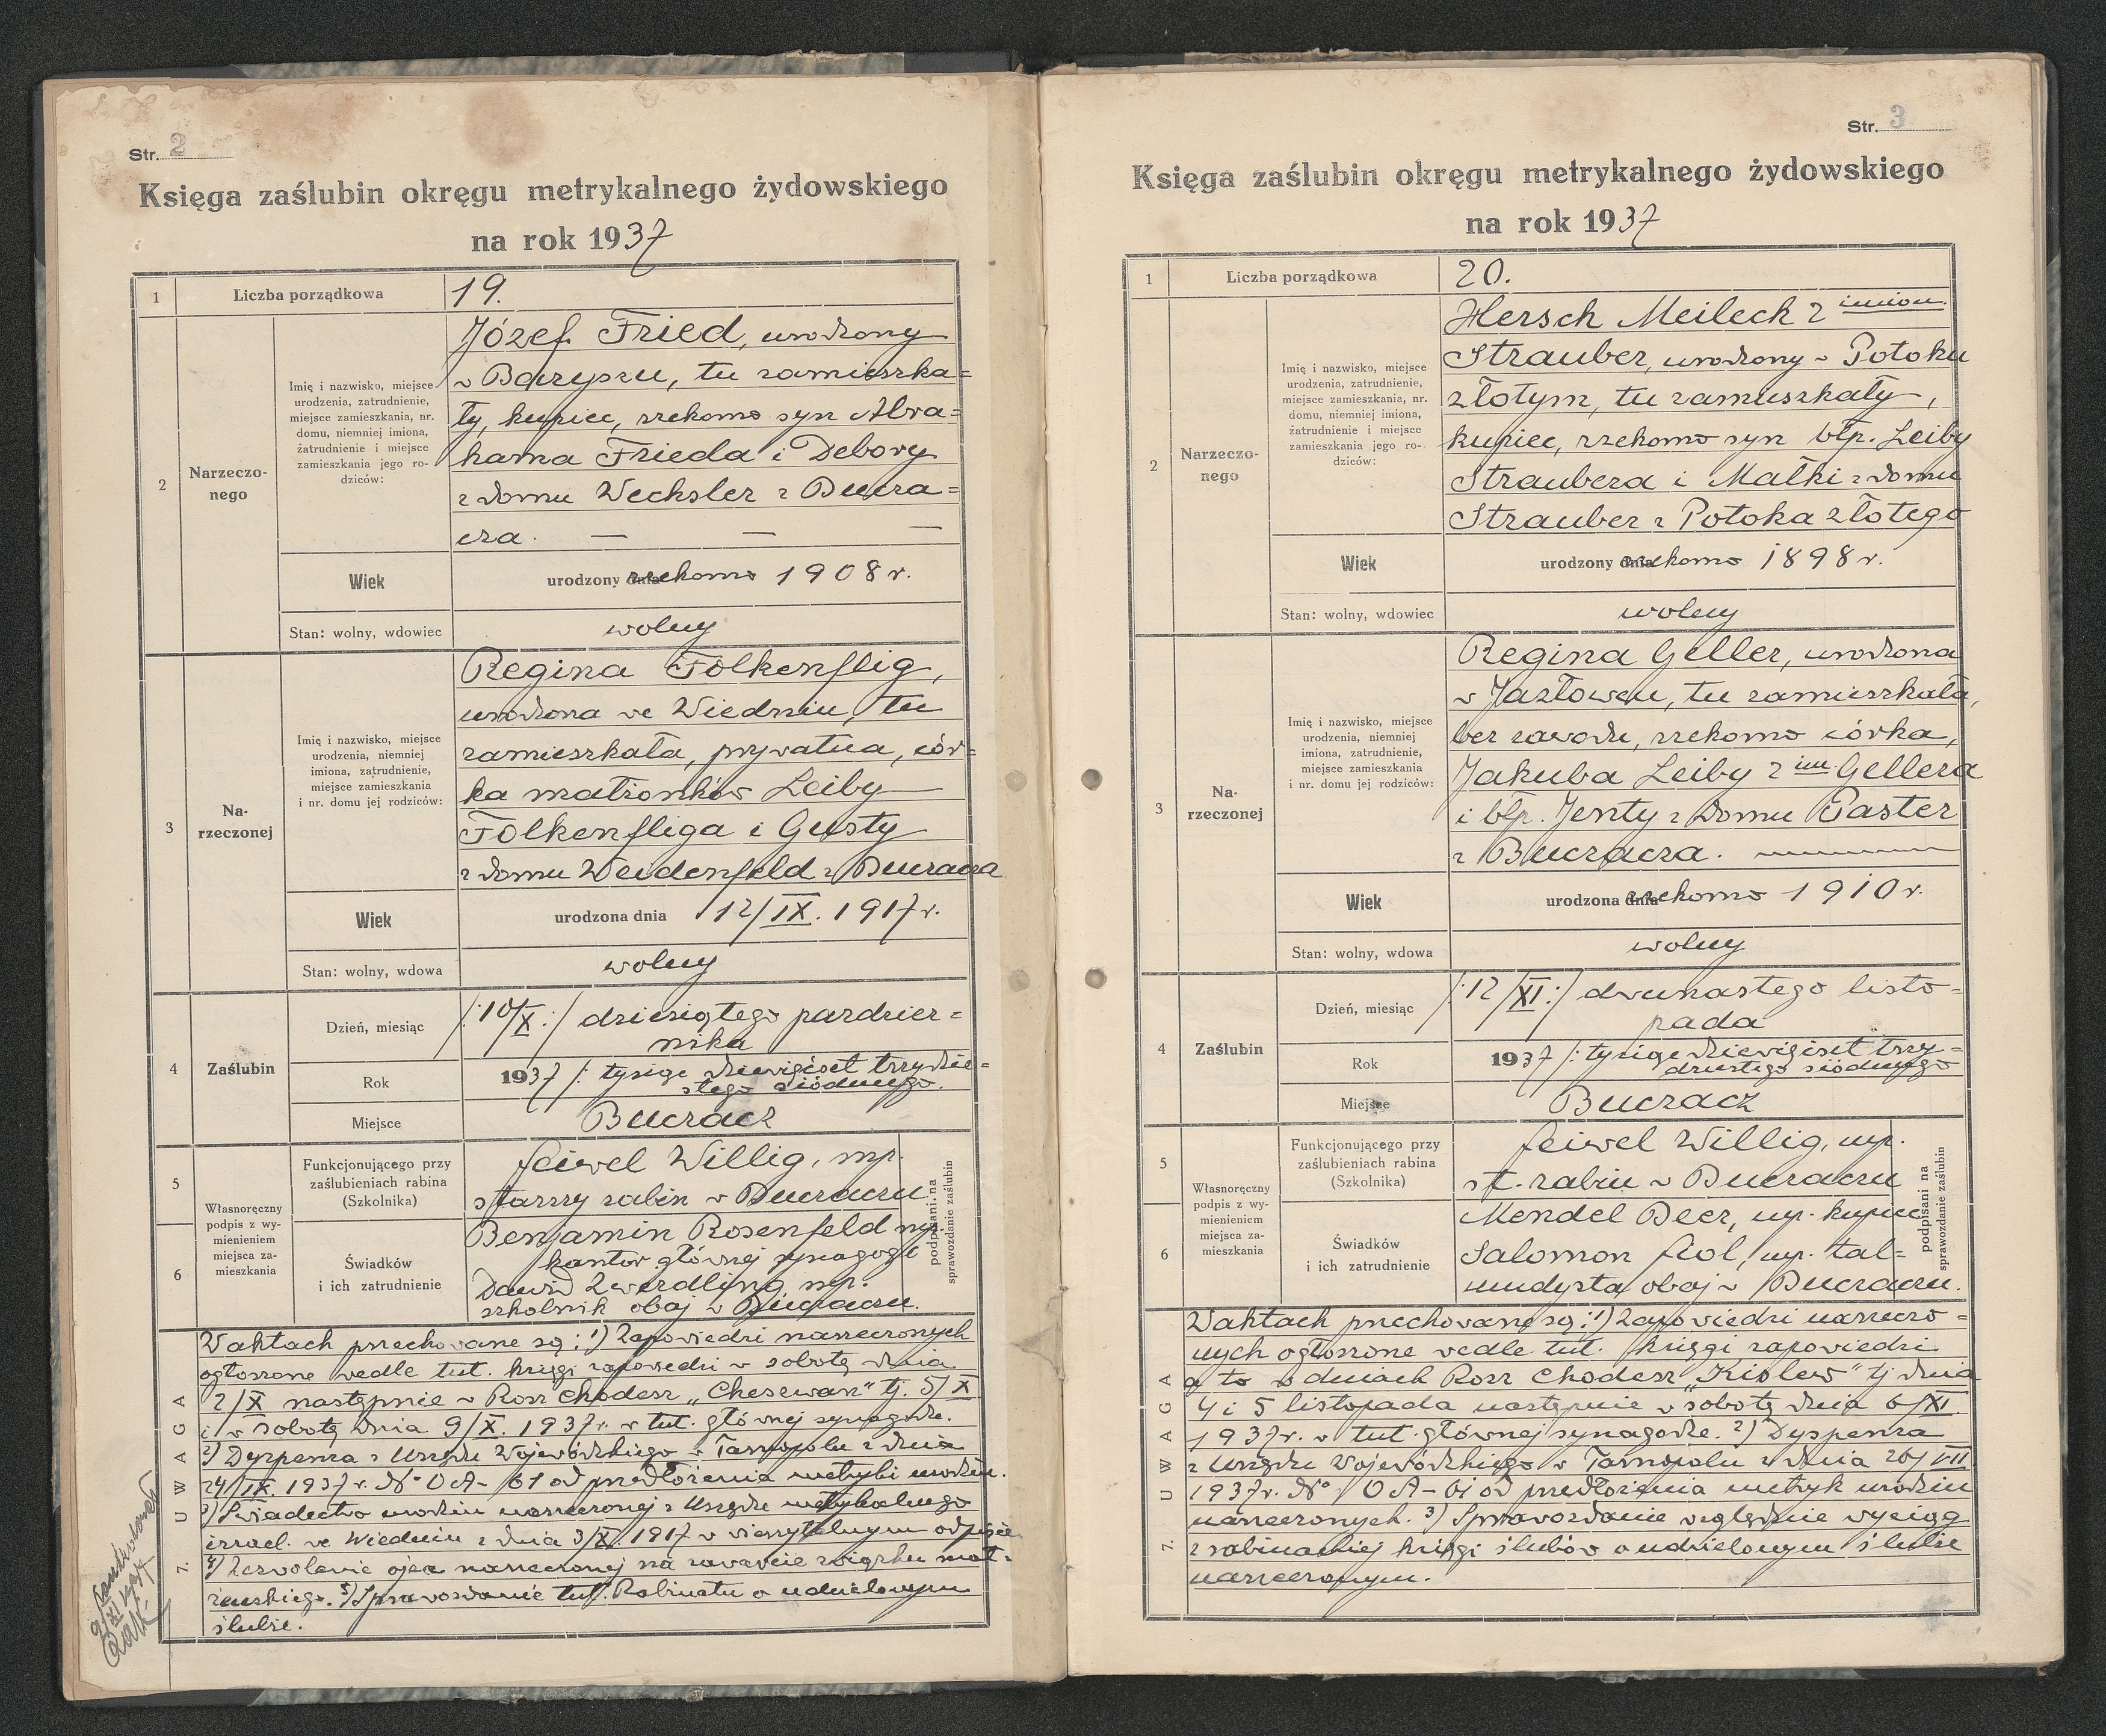 Str. 2
Księga zaślubin okręgu metrykalnego żydowskiego
na rok 1937
1 Liczba porządkowa 19.
2 Narzeczo-
nego
Imię i nazwisko, miejsce
urodzenia, zatrudnienie,
miejsce zamieszkania, nr.
domu, niemniej imiona,
zatrudnienie i miejsce
zamieszkania jego ro-
dziców:
Józef Fried, urodzony
w Baryszu, tu zamieszka=
ły, kupiec, rzekomo syn Abra=
hama Frieda i Debory
z domu Wechsler z Bucza=
cza. — — —
Wiek urodzony dnia rzekomo 1908 r.
Stan: wolny, wdowiec wolny
3 Na-
rzeczonej
Imię i nazwisko, miejsce
urodzenia, niemniej
imiona, zatrudnienie,
miejsce zamieszkania
i nr. domu jej rodziców:
Regina Folkenflig,
urodzona we Wiedniu, tu
zamieszkała, prywatna, cór=
ka małżonków Leiby
Folkenfliga i Gusty
z domu Weidenfeld z Buczacza
Wiek urodzona dnia 12/IX. 1917 r.
Stan: wolny, wdowa wolny
4 Zaślubin
Dzień, miesiąc /:10/X:/ dziesiątego paździer=
nika
Rok 1937 /: tysiąc dziewięćset trzydzie=
stego siódmego.
Miejsce Buczacz
5
6
Własnoręczny
podpis z wy-
mienieniem
miejsca za-
mieszkania
Funkcjonującego przy
zaślubieniach rabina
(Szkolnika)
feiwel Willig, mp.
starszy rabin w Buczaczu
Świadków
i ich zatrudnienie
Benjamin Rosenfeld mp.
kantor głównej synagogi
Dawid Zwerdling mp.
szkolnik obaj w Buczaczu.
podpisani na
sprawozdanie zaślubin
7. UWAGA
W aktach przechowane są: 1) Zapowiedzi narzeczonych
ogłoszone wedle tut. księgi zapowiedzi w sobotę dnia
2/X następnie w Rosz Chodesz „Cheszwan" tj. 5/X
i w sobotę dnia 9/X. 1937 r. w tut. głównej synagodze.
2) Dyspenza z Urzędu Wojewódzkiego w Tarnopolu z dnia
24/IX. 1937 r. No OA- 61 od przedłożenia metryki urodzin.
3) Świadectwo urodzin narzeczonej z Urzędu metrykalnego
izrael. we Wiedniu z dnia 3/X. 1917 w wierzytelnym odpisie
4) Zezwolenie ojca narzeczonej na zawarcie związku mał=
żeńskiego. 5) Sprawozdanie tut. Rabinatu o udzielonym
ślubie.
Str. 3
Księga zaślubin okręgu metrykalnego żydowskiego
na rok 1937
1 Liczba porządkowa 20.
2 Narzeczo-
nego
Imię i nazwisko, miejsce
urodzenia, zatrudnienie,
miejsce zamieszkania, nr.
domu, niemniej imiona,
zatrudnienie i miejsce
zamieszkania jego ro-
dziców:
Hersch Meilech 2 imion.
Strauber, urodzony w Potoku
złotym, tu zamieszkały,
kupiec, rzekomo syn błp. Leiby
Straubera i Małki z domu
Strauber z Potoka złotego
Wiek urodzony dnia rzekomo 1898 r.
Stan: wolny, wdowiec wolny
3 Na-
rzeczonej
Imię i nazwisko, miejsce
urodzenia, niemniej
imiona, zatrudnienie,
miejsce zamieszkania
i nr. domu jej rodziców:
Regina Geller, urodzona
w Jazłowcu, tu zamieszkała,
bez zawodu, rzekomo córka,
Jakuba Leiby 2 im. Gellera
i błp. Jenty z domu Paster
z Buczacza.
Wiek urodzona dnia rzekomo 1910 r.
Stan: wolny, wdowa wolny
4 Zaślubin
Dzień, miesiąc /:12/XI:/ dwunastego listo=
pada
Rok 1937 /: tysiąc dziewięćset trzy=
dziestego siódmego
Miejsce Buczacz
5
6
Własnoręczny
podpis z wy-
mienieniem
miejsca za-
mieszkania
Funkcjonującego przy
zaślubieniach rabina
(Szkolnika)
feiwel Willig, mp.
st. rabin w Buczaczu
Świadków
i ich zatrudnienie
Mendel Beer, mp. kupiec
Salomon fiol, mp. tal=
mudysta obaj w Buczaczu.
podpisani na
sprawozdanie zaślubin
7. UWAGA
W aktach przechowane są: 1) Zapowiedzi narzeczo=
nych ogłoszone wedle tut. księgi zapowiedzi
a to w dniach Rosz Chodesz „Kislew" tj dnia
4 i 5 listopada następnie w sobotę dnia 6/XI
1937 r. w tut. głównej synagodze. 2) Dyspenza
z Urzędu Wojewódzkiego w Tarnopolu z dnia 20/VII
1937 r. No. OA-61 od przedłożenia metryk urodzin
narzeczonych. 3) Sprawozdanie względnie wyciąg
z rabinackiej księgi ślubów o udzielonym ślubie
narzeczonym.